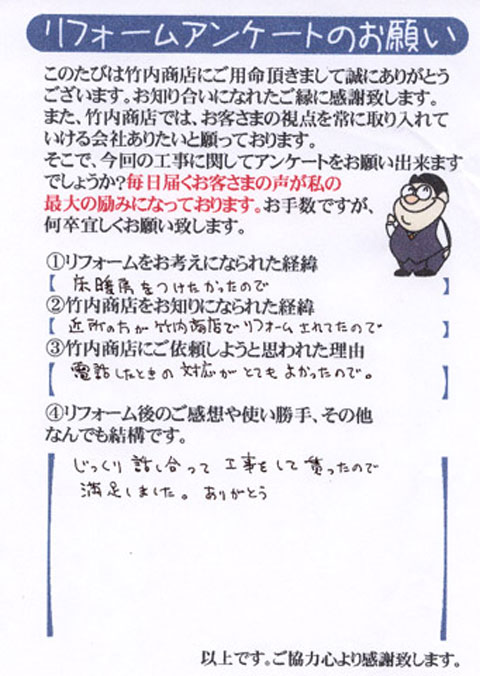 リフォームアンケートのお願い
このたびは竹内商店にご用命頂きまして誠にありがとう
ございます。お知り合いになれたご縁に感謝致します。
また、竹内商店では、お客さまの視点を常に取り入れて
いける会社ありたいと願っております。
そこで、今回の工事に関してアンケートをお願い出来ます
でしょうか?毎日届くお客さまの声が私の
最大の励みになっております。お手数ですが、
何卒宜しくお願い致します。
①リフォームをお考えになられた経緯
【 床暖房をつけたかったので 】
②竹内商店をお知りになられた経緯
【 近所の方が竹内商店でリフォームされてたので 】
③竹内商店にご依頼しようと思われた理由
電話したときの対応がとてもよかったので。
④リフォーム後のご感想や使い勝手、その他
なんでも結構です。
じっくり話し合って工事をして貰ったので
満足しました。ありがとう
以上です。ご協力心より感謝致します。